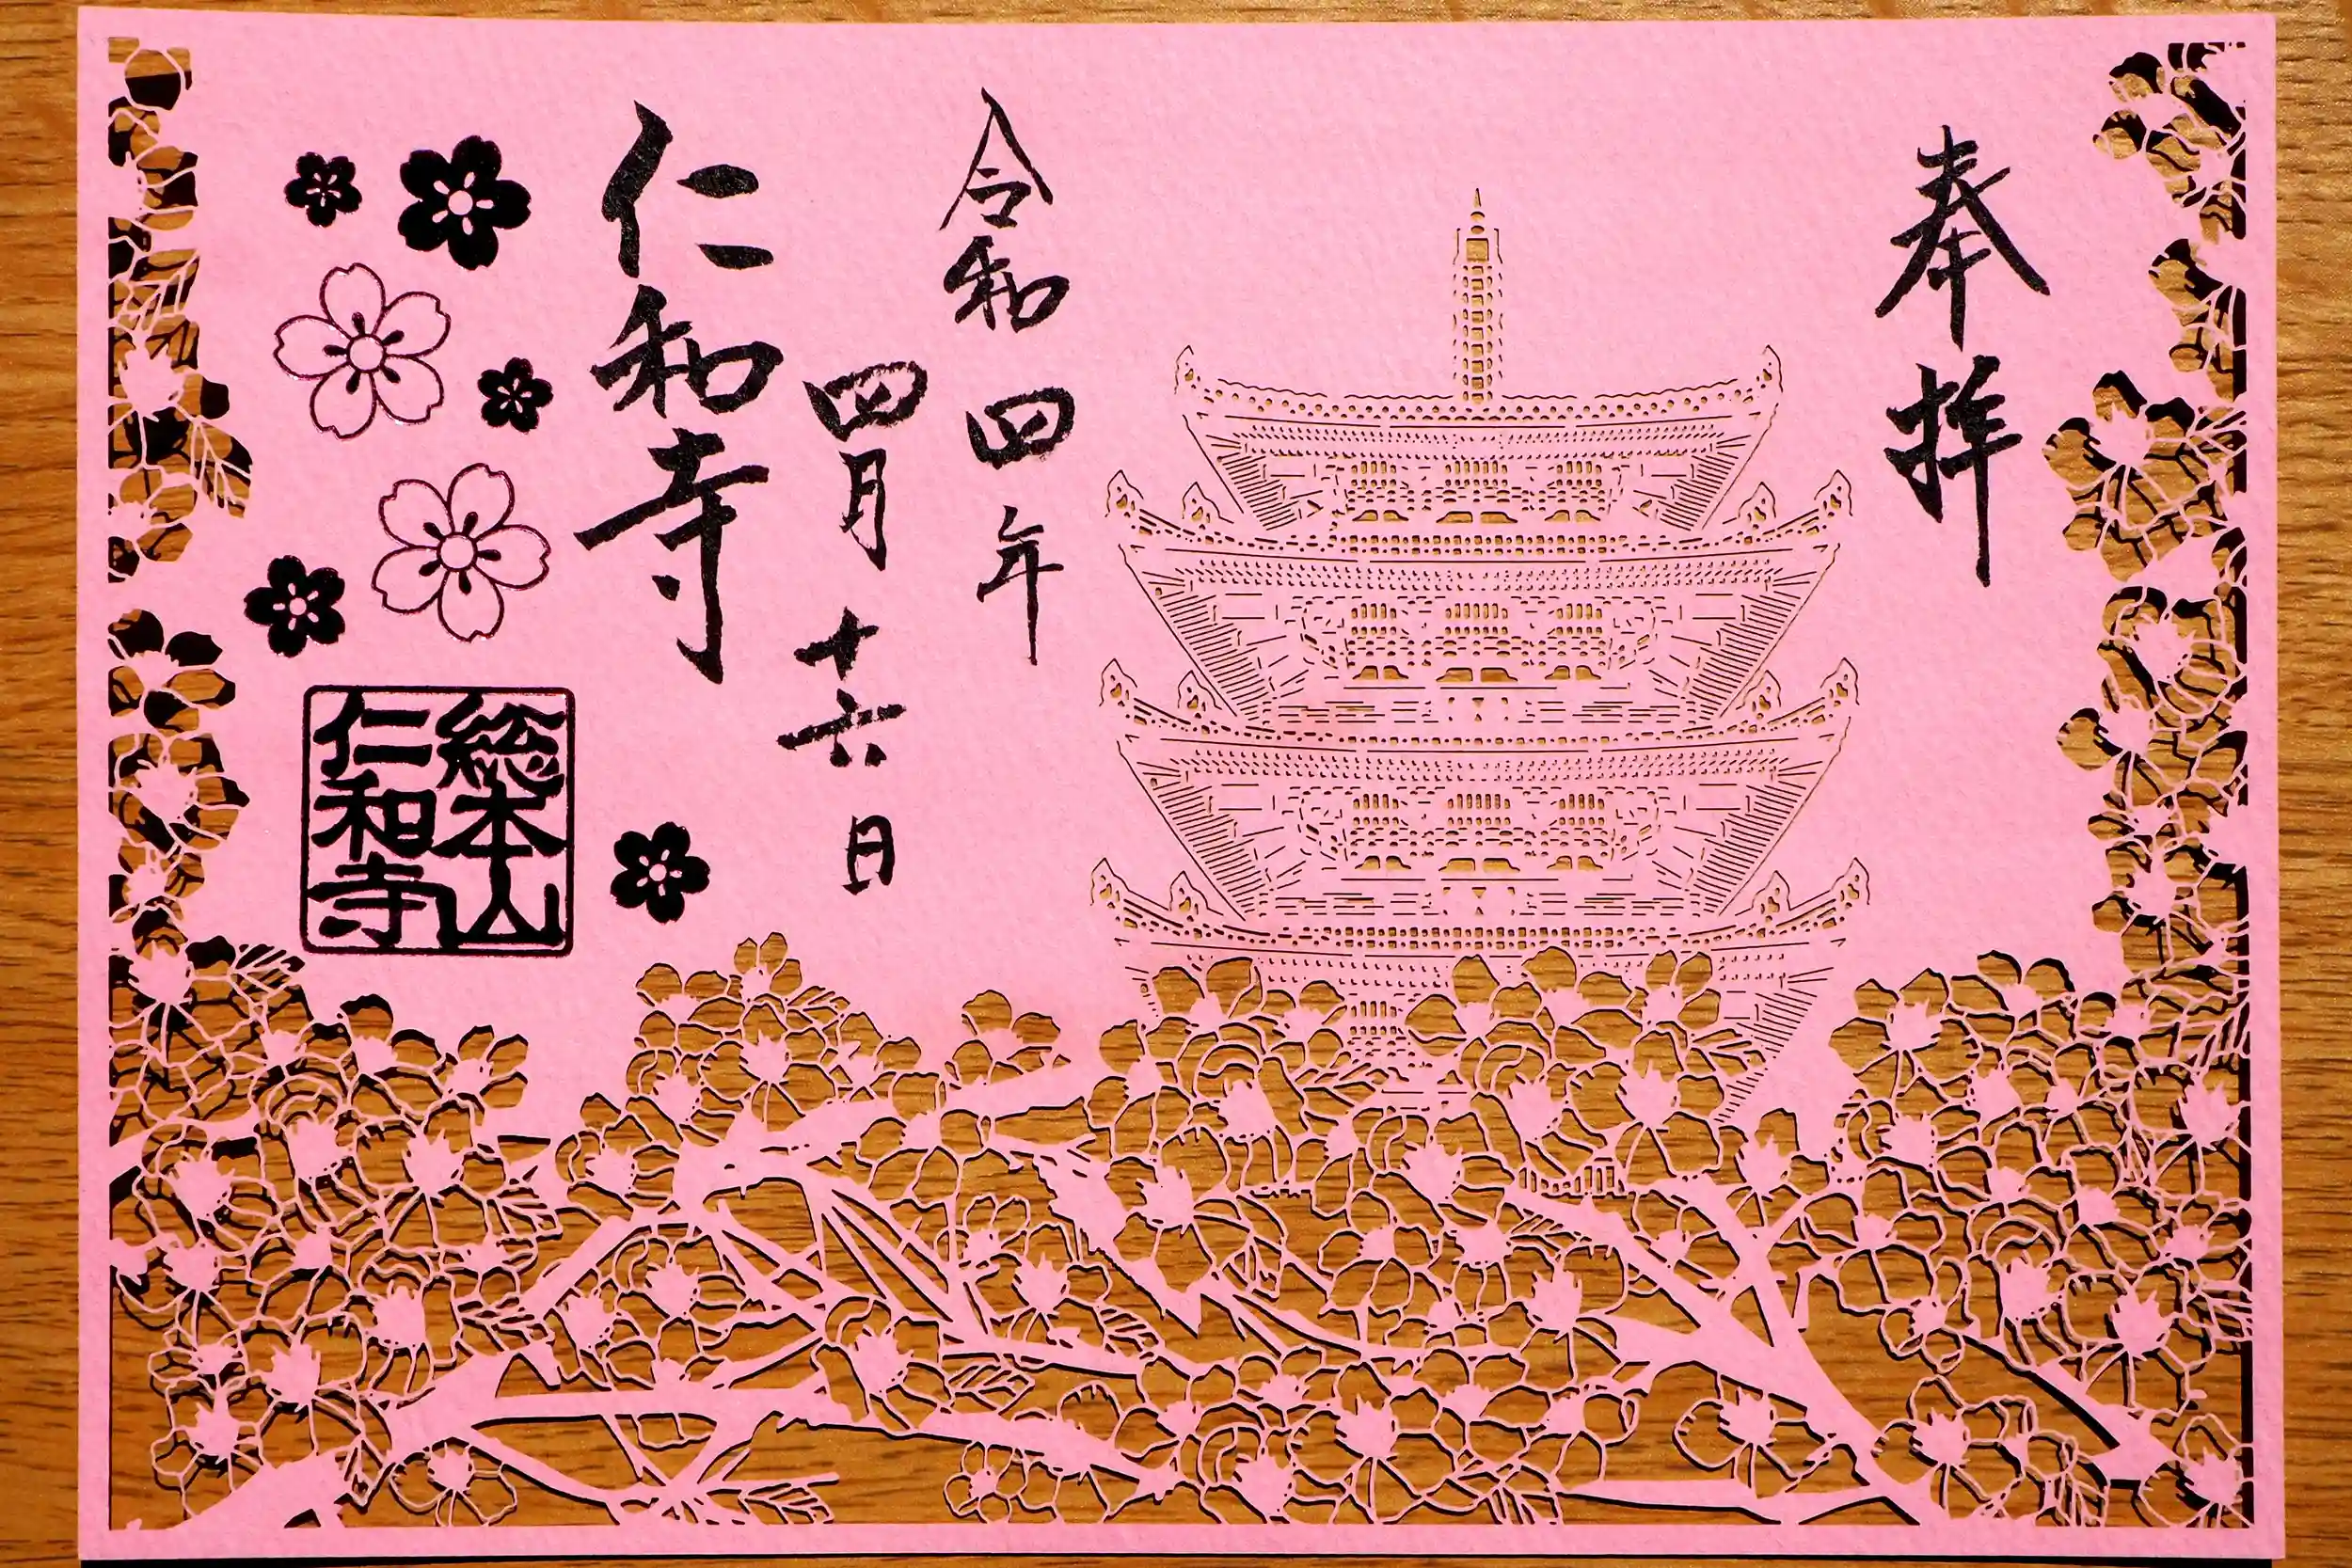 奉拝
令和四年
四月十六日
仁和寺
総本山
仁和寺